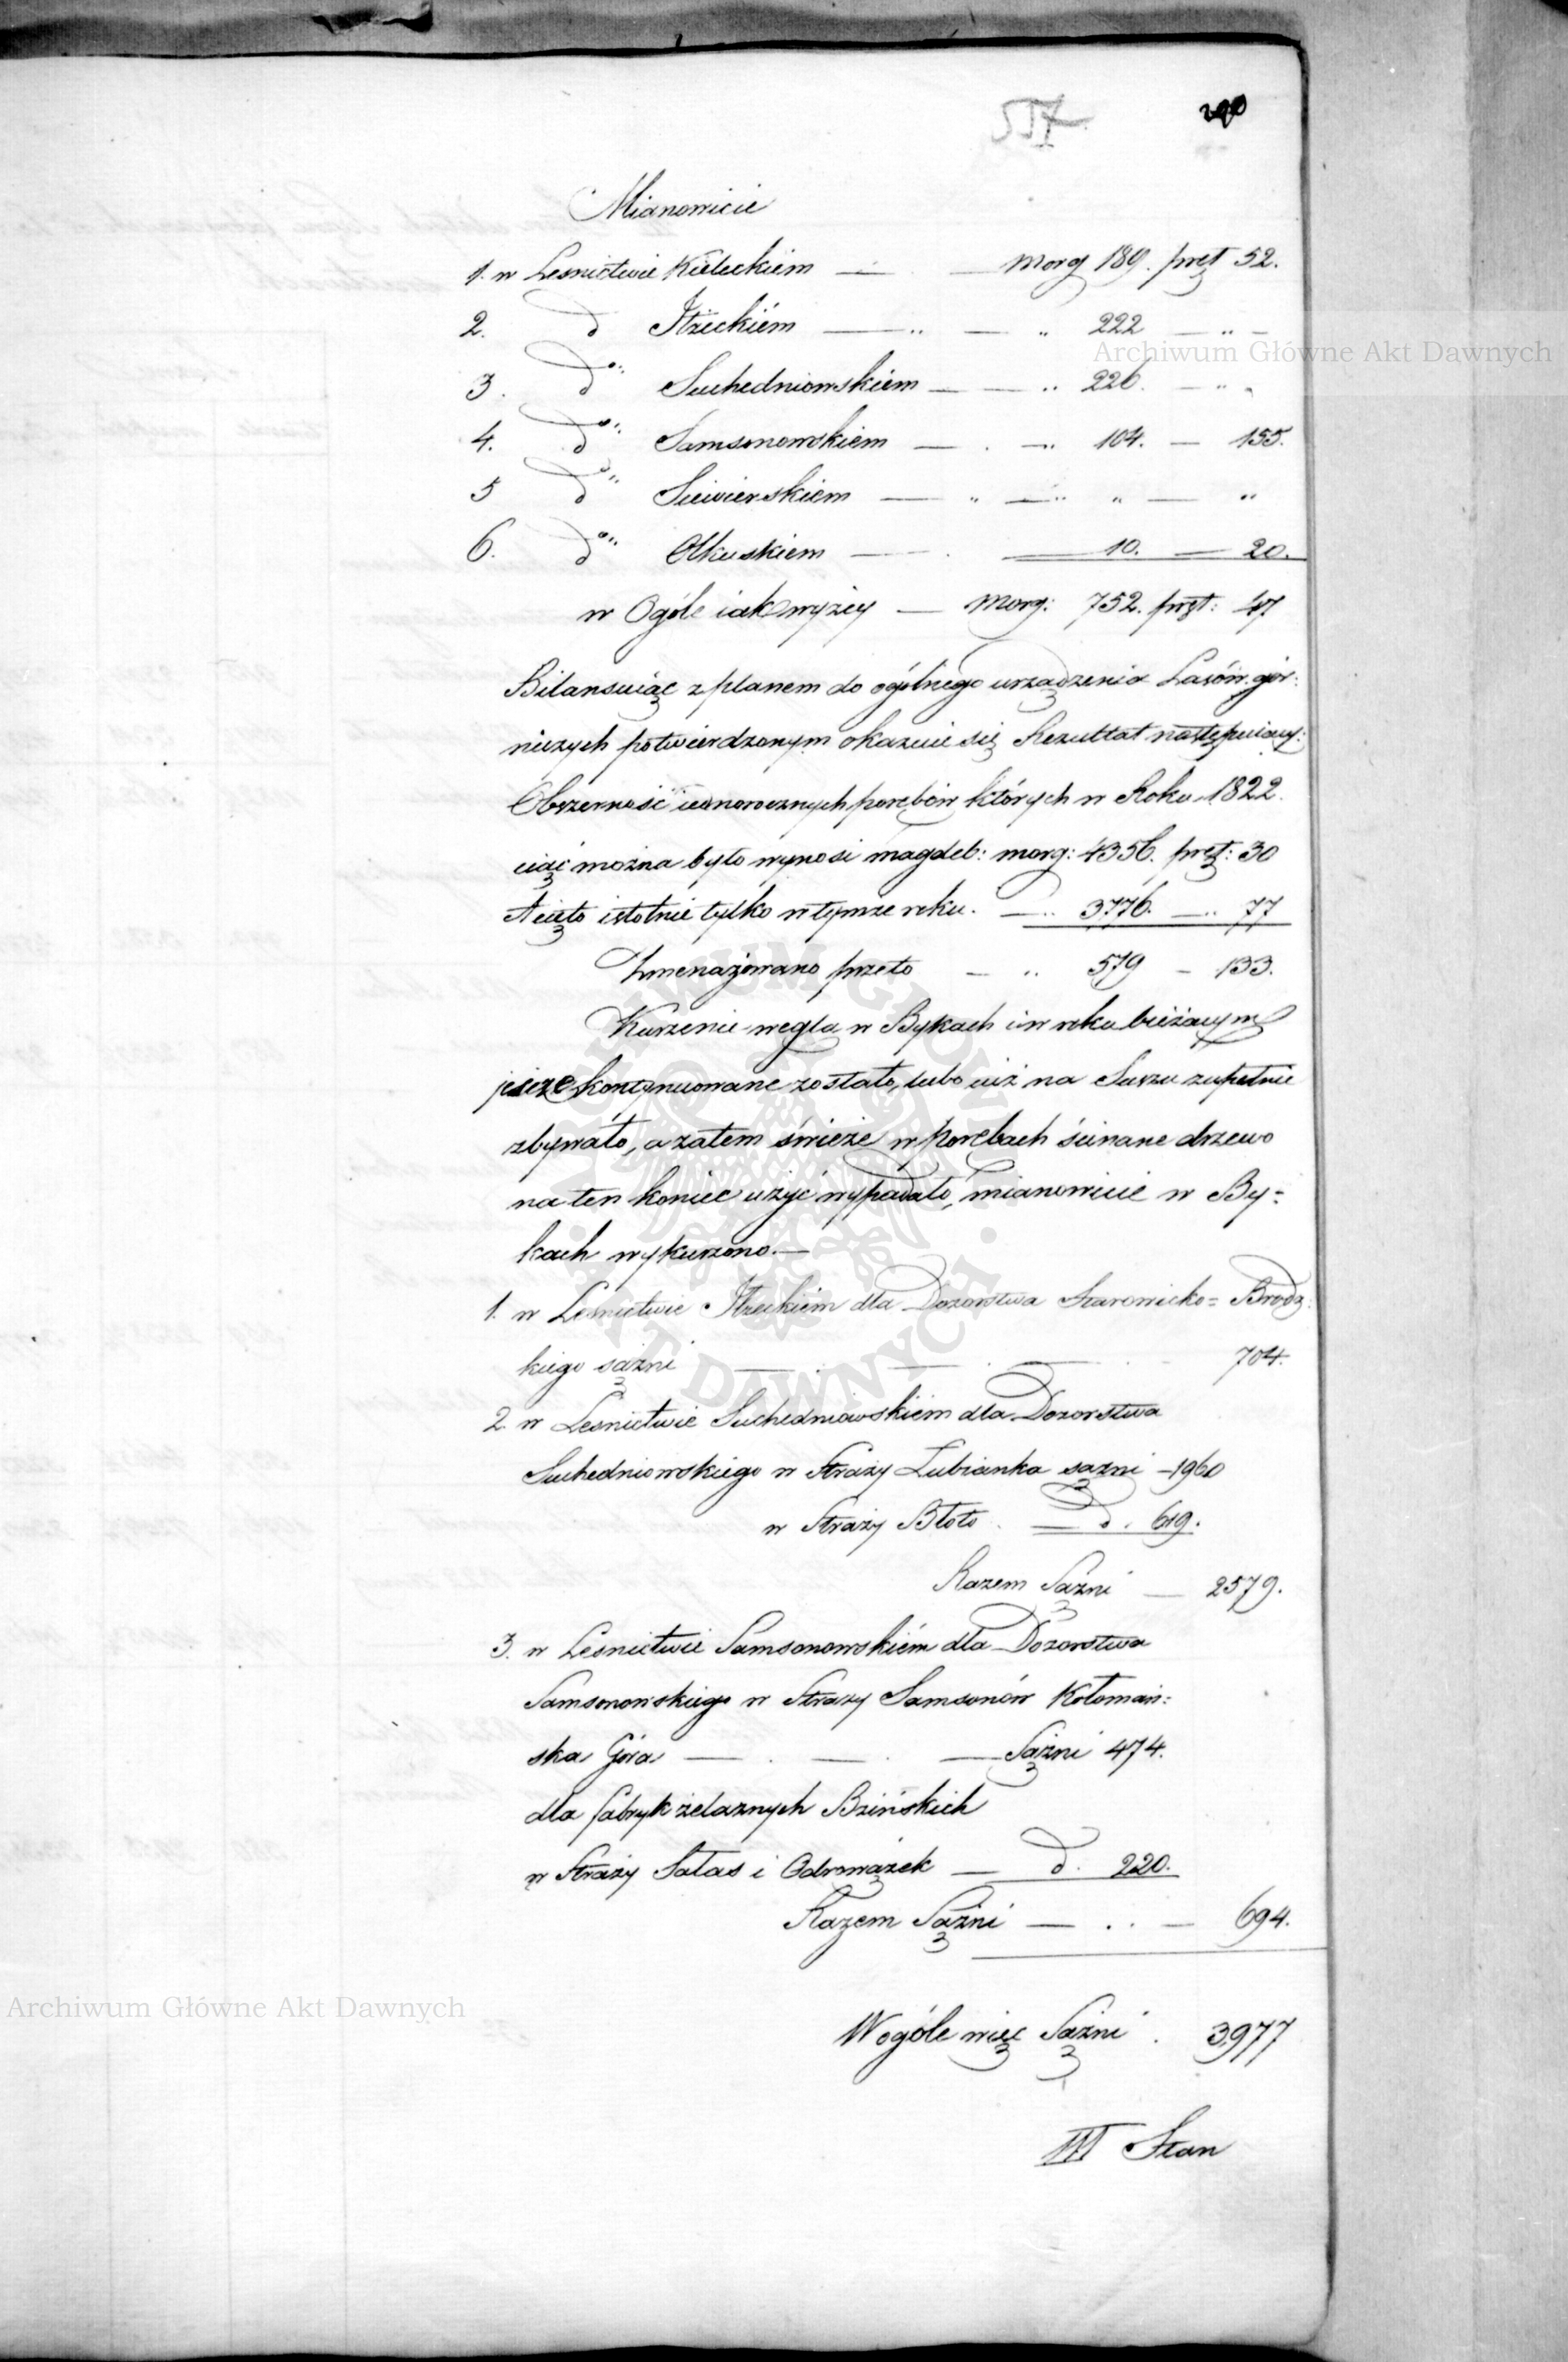 557. 290
Mianowicie
1. w Lesnictwie Kieleckiem — — morg 189. pręt 52.
2. do Iłżeckiém — „ — „ 222 — „ –
3. do „ Suchedniowskiem — — „ 226. — „ „
4. do „ Samsonowskiem — . — „ 104. — 155.
5 do „ Siewierskiem — „ — „ „ — „
6. do „ Olkuskiem — . — 10. — 20.
w Ogóle iak wyżey — morg: 752. pręt: 47
Bilansuiąc z planem do ogólnego urządzenia Lasów gór:
niczych potwierdzonym okazuie się Rezultat następuiący:
Obszerność iednorocznych porębów których w Roku 1822.
ciąć można było wynosi magdeb: morg: 4356. pręt: 30
A cięto istotnie tylko w tymże roku. — „ 3776. — „ 77
Zmenażowano przeto — „ 579 – 133.
Kurzenie węgla w Bykach i w roku bieżącym
jeszcze kontynuowane zostało, lubo iuż na Suszu zupełnie
zbywało, a zatem świeże w porębach ścinane drzewo
na ten koniec użyć wypadało, mianowicie w By=
kach wykurzono.—
1. w Lesnictwie Iłżeckiem dla Dozorstwa Starowicko= Brodz:
kiego sążni — . — . — . . 704.
2. w Lesnictwie Suchedniowskiem dla Dozorstwa
Suchedniowskiego w Straży Łubianka sążni – 1960
w Straży Błoto . — do. 619.
Razem Sążni — 2579.
3. w Lesnictwie Samsonowskiém dla Dozorstwa
Samsonowskiego w Straży Samsonów Kołomań:
ska Góra — . — . — Sążni 474.
dla fabryk żelaznych Bzińskich
w Straży Sałas i Odrowążek — do. 220.
Razem Sążni — . . — 694.
W ogóle więc Sążni . 3977
III Stan
Archiwum Główne Akt Dawnych
Archiwum Główne Akt Dawnych
ARCHIWUM GŁÓWNE AKT DAWNYCH